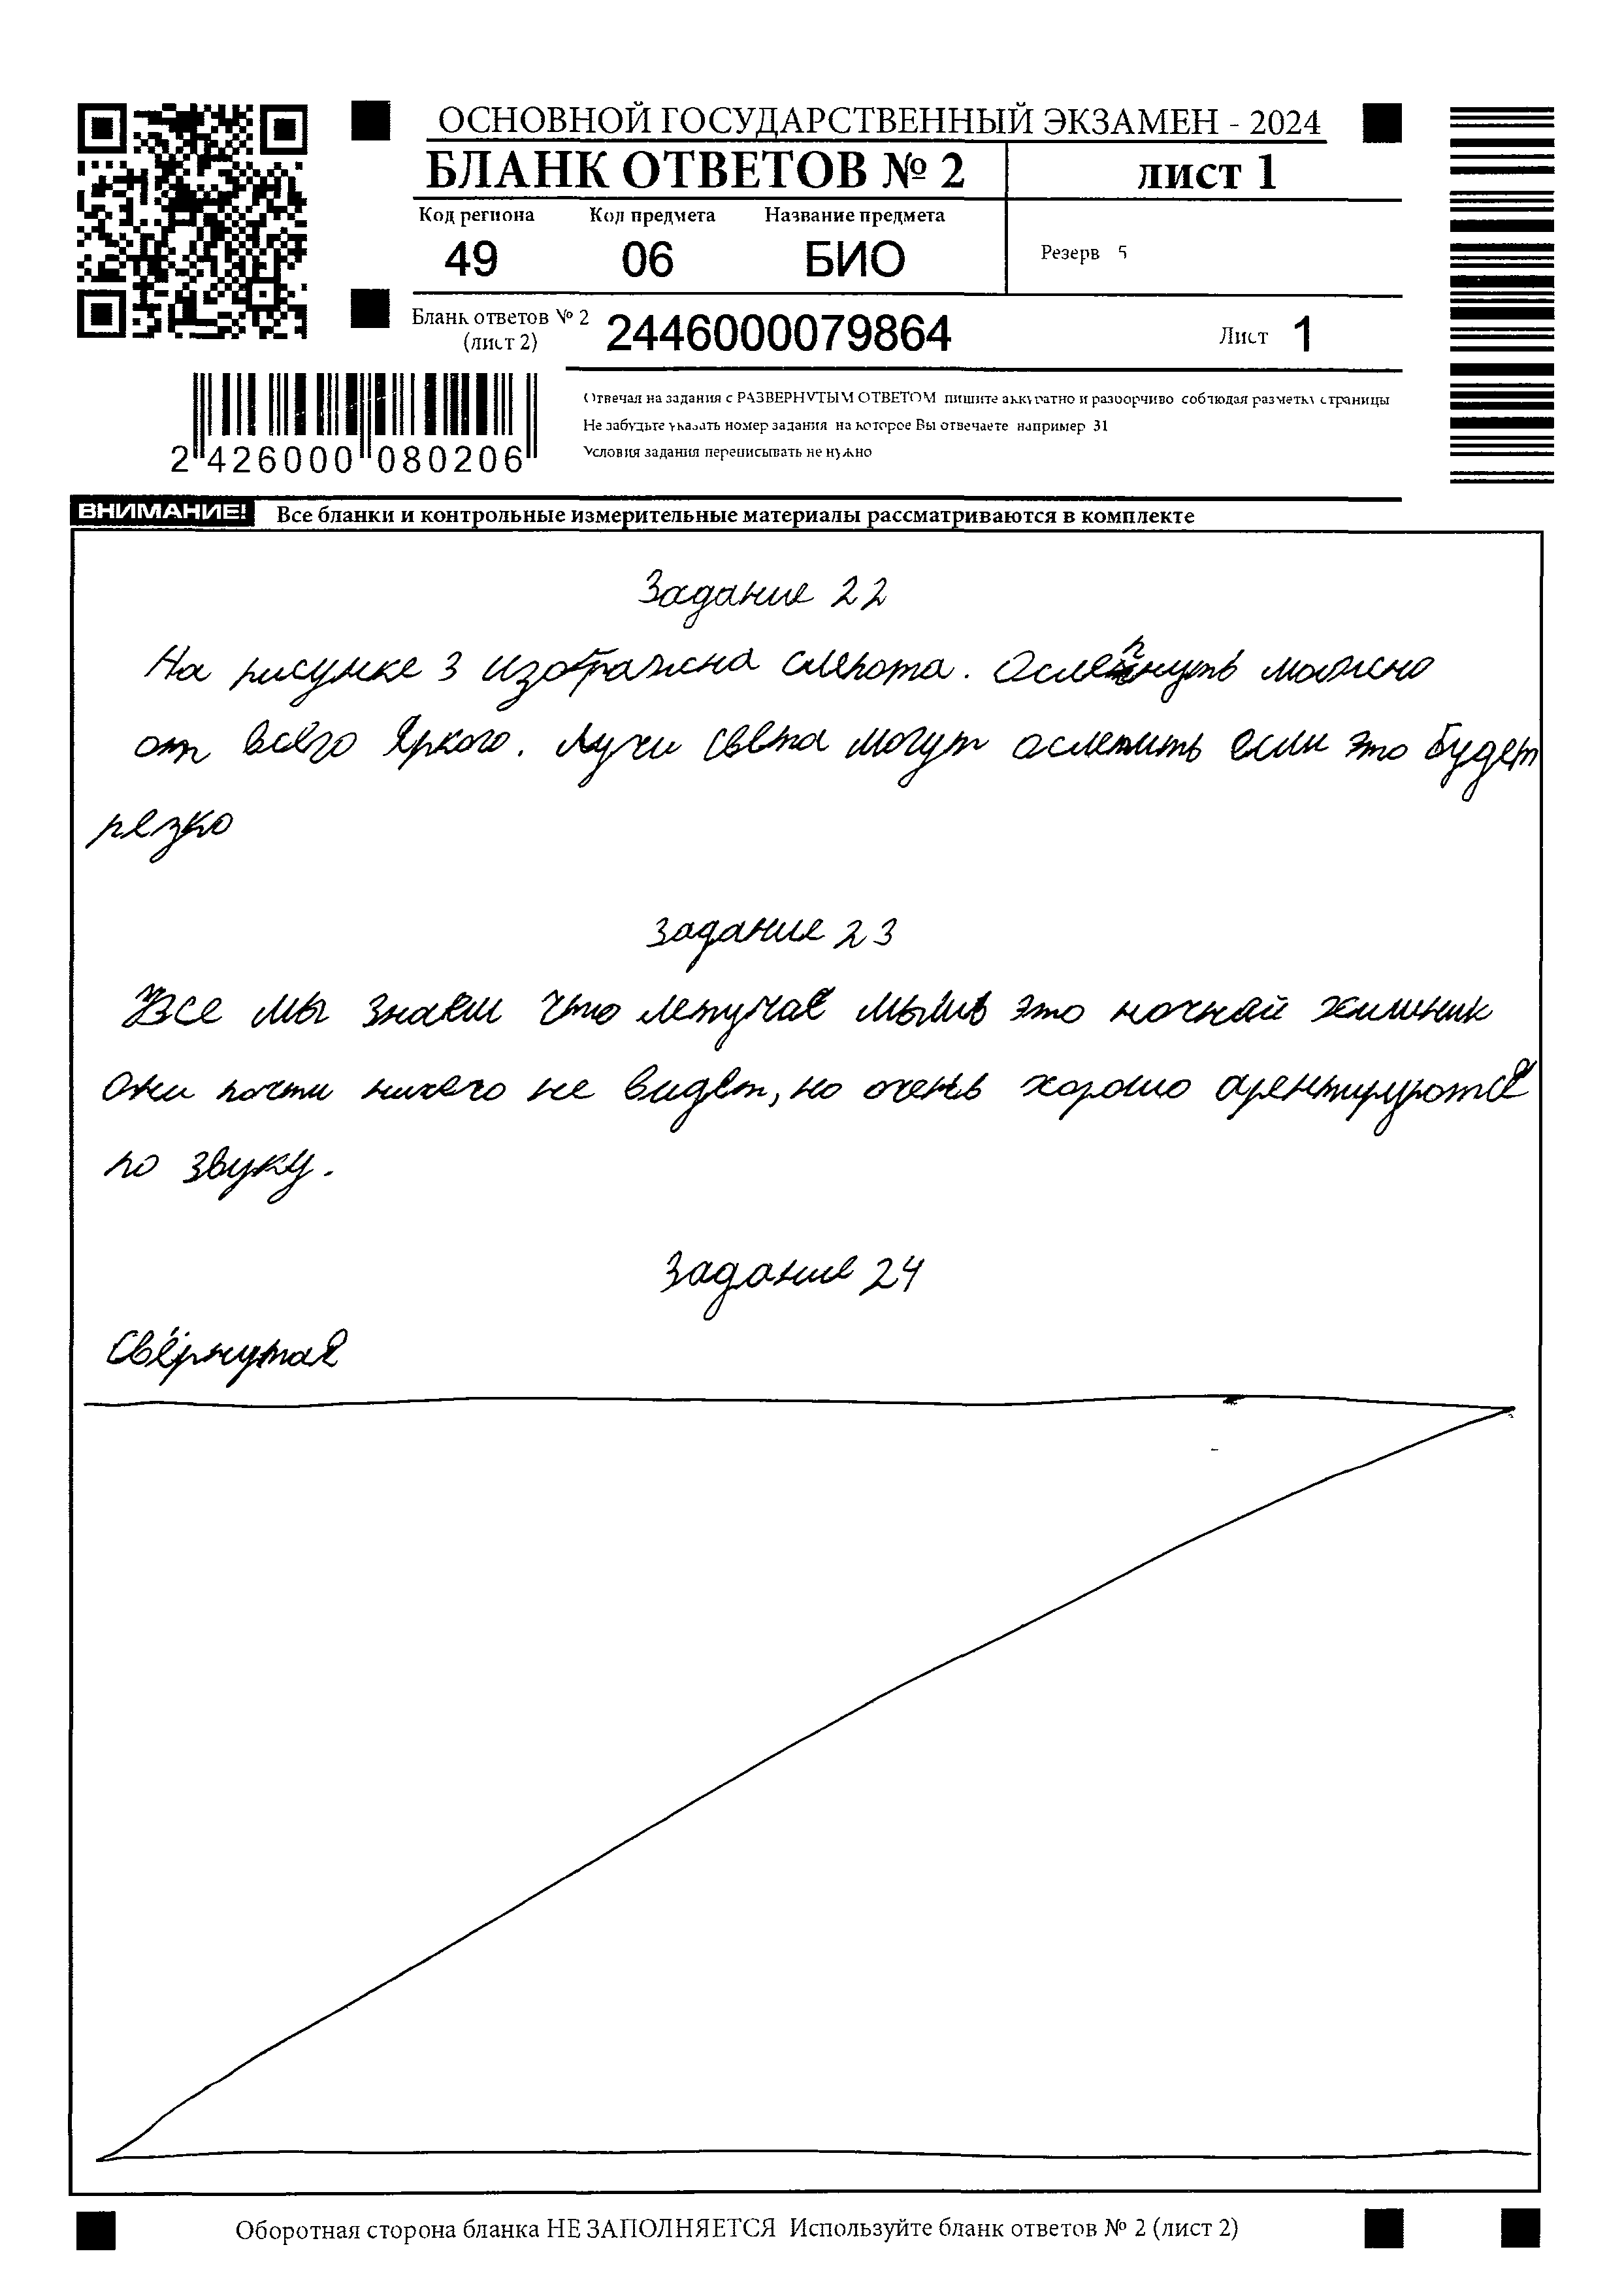 ОСНОВНОЙ ГОСУДАРСТВЕННЫЙ ЭКЗАМЕН - 2024
БЛАНК ОТВЕТОВ № 2
лист 1
Код региона Код предмета Название предмета
49 06 БИО
Резерв 5
Бланк ответов № 2
(лист 2)
2446000079864
Лист 1
2 426000 080206
Отвечая на задания с РАЗВЕРНУТЫМ ОТВЕТОМ пишите аккуратно и разборчиво соблюдая разметку страницы
Не забудьте указать номер задания на которое Вы отвечаете например 31
Условия задания переписывать не нужно
ВНИМАНИЕ! Все бланки и контрольные измерительные материалы рассматриваются в комплекте
Задание 22
На рисунке 3 изображена слепота. Ослепнуть можно
от всего яркого. Лучи света могут ослепить если это будет
резко
Задание 23
Все мы знаем что летучая мышь это ночной хищник
Они почти ничего не видет, но очень хорошо арентируются
по звуку.
Задание 24
Свёрнутая
Оборотная сторона бланка НЕ ЗАПОЛНЯЕТСЯ Используйте бланк ответов № 2 (лист 2)